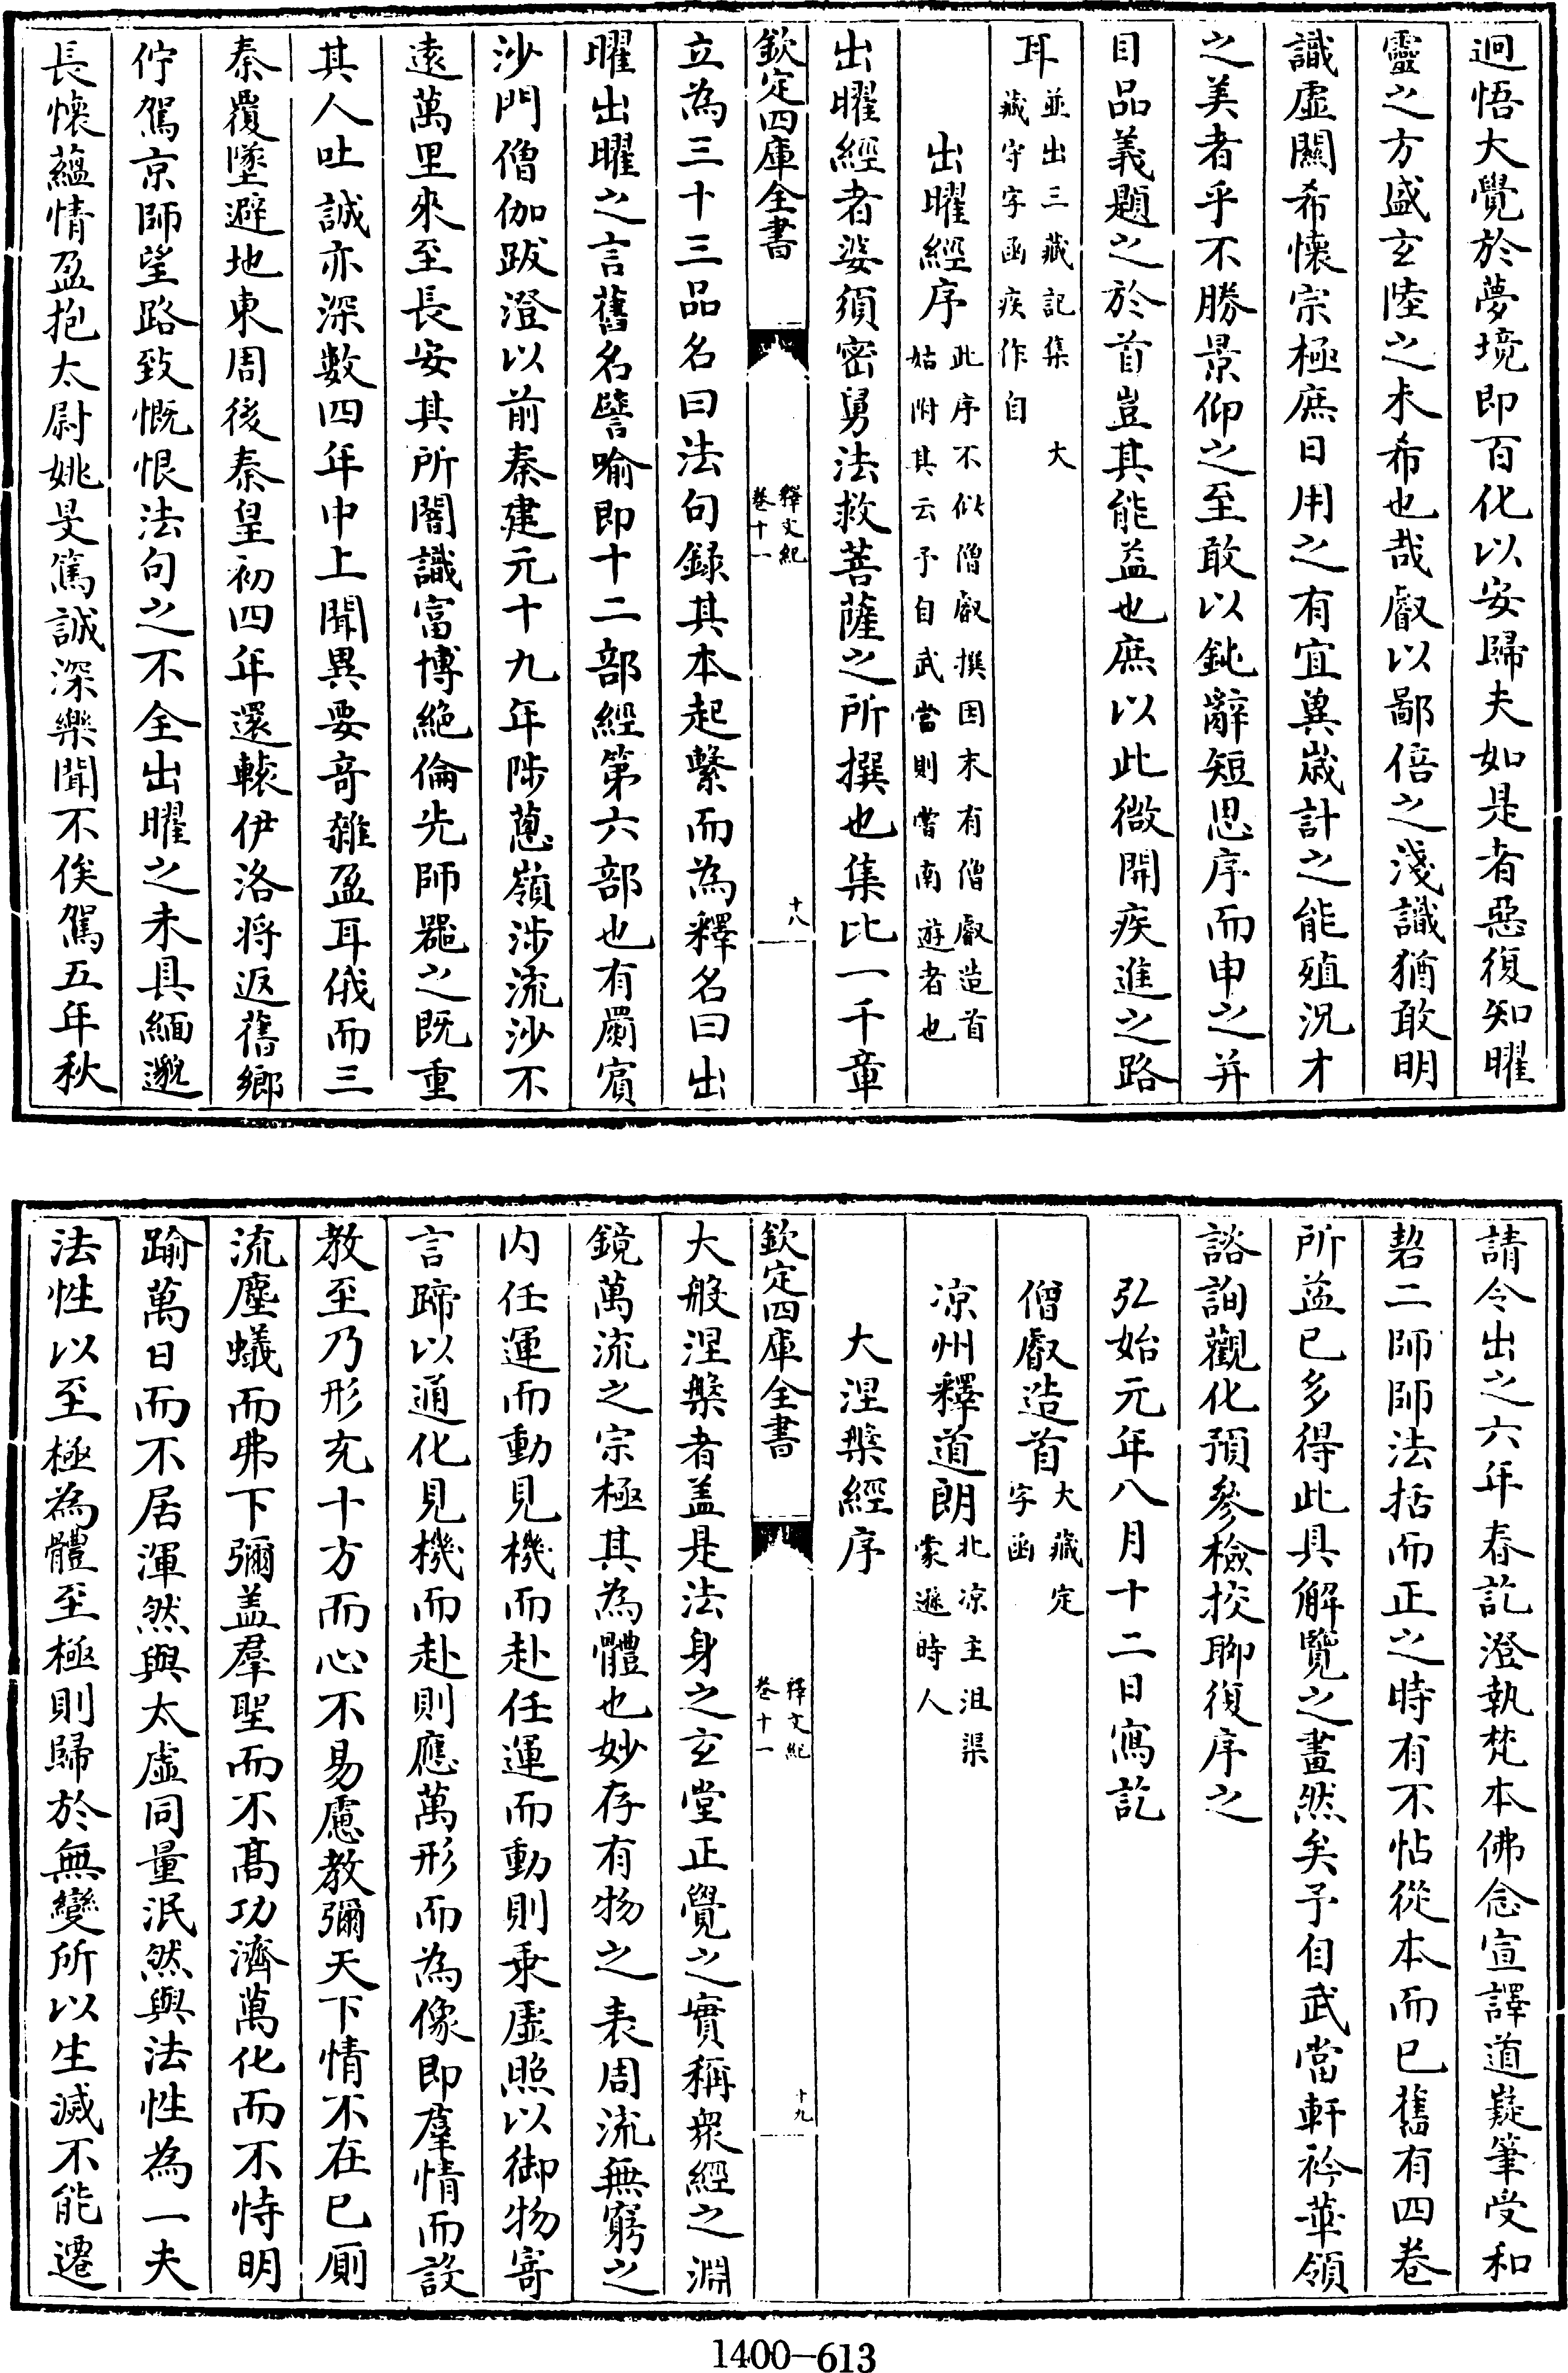 迥悟大覺於夢境即百化以安歸夫如是者惡復知曜
靈之方盛玄陸之未希也哉叡以鄙倍之淺識猶敢明
識虛關希懷宗極庶日用之有宜冀歲計之能殖況才
之美者乎不勝景仰之至敢以鈍辭短思序而申之并
目品義題之於首豈其能益也庶以此微開疾進之路
耳並出三藏記集 大
藏守字函疾作自
出曜經序此序不似僧叡撰因末有僧叡造首
姑附其云予自武當則嘗南遊者也
出曜經者婆須密舅法救菩薩之所撰也集比一千章
欽定四庫全書
釋文紀
卷十一
十八
立為三十三品名曰法句録其本起繫而為釋名曰出
曜出曜之言舊名譬喻即十二部經第六部也有罽賓
沙門僧伽跋澄以前秦建元十九年陟蔥嶺涉流沙不
遠萬里來至長安其所闇識富博絶倫先師器之既重
其人吐誠亦深數四年中上聞異要奇雜盈耳俄而三
秦覆墜避地東周後秦皇初四年還轅伊洛將返舊鄉
佇駕京師望路致慨恨法句之不全出曜之未具緬邈
長懷蘊情盈抱太尉姚旻篤誠深樂聞不俟駕五年秋
請令出之六年春訖澄執梵本佛念宣譯道嶷筆受和
碧二師師法括而正之時有不怗從本而已舊有四卷
所益已多得此具解覽之畫然矣予自武當軒衿華領
諮詢觀化預參檢挍聊復序之
弘始元年八月十二日寫訖
僧叡造首大藏定
字函
凉州釋道朗北凉主沮渠
蒙遜時人
大涅槃經序
欽定四庫全書
釋文紀
卷十一
十九
大般涅槃者盖是法身之玄堂正覺之實稱衆經之淵
鏡萬流之宗極其為體也妙存有物之表周流無窮之
内任運而動見機而赴任運而動則乘虛照以御物寄
言蹄以通化見機而赴則應萬形而為像即羣情而設
教至乃形充十方而心不易慮教彌天下情不在已厠
流塵蟻而弗下彌盖羣聖而不髙功濟萬化而不恃明
踰萬日而不居渾然與太虛同量泯然與法性為一夫
法性以至極為體至極則歸於無變所以生滅不能遷
1400-613